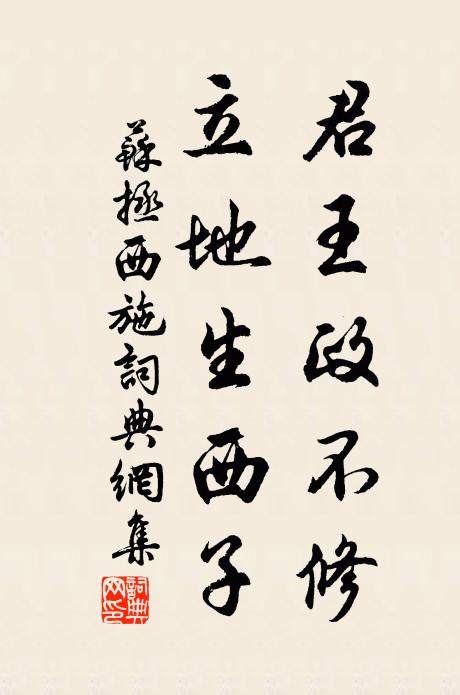 君王政不修
立地生西子
蘇拯西施詞典網集
詞典网印